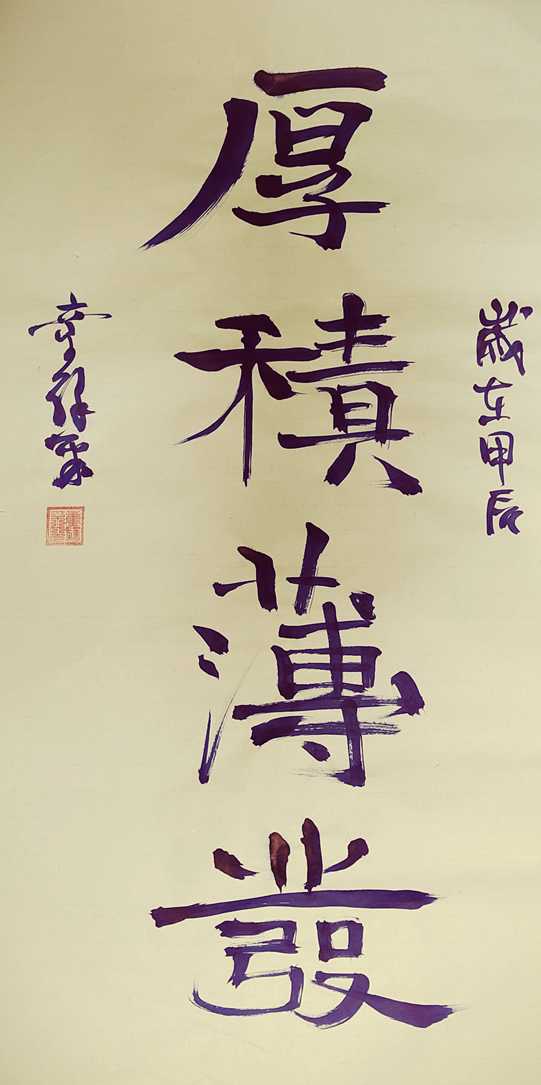 歲在甲辰
厚積薄發